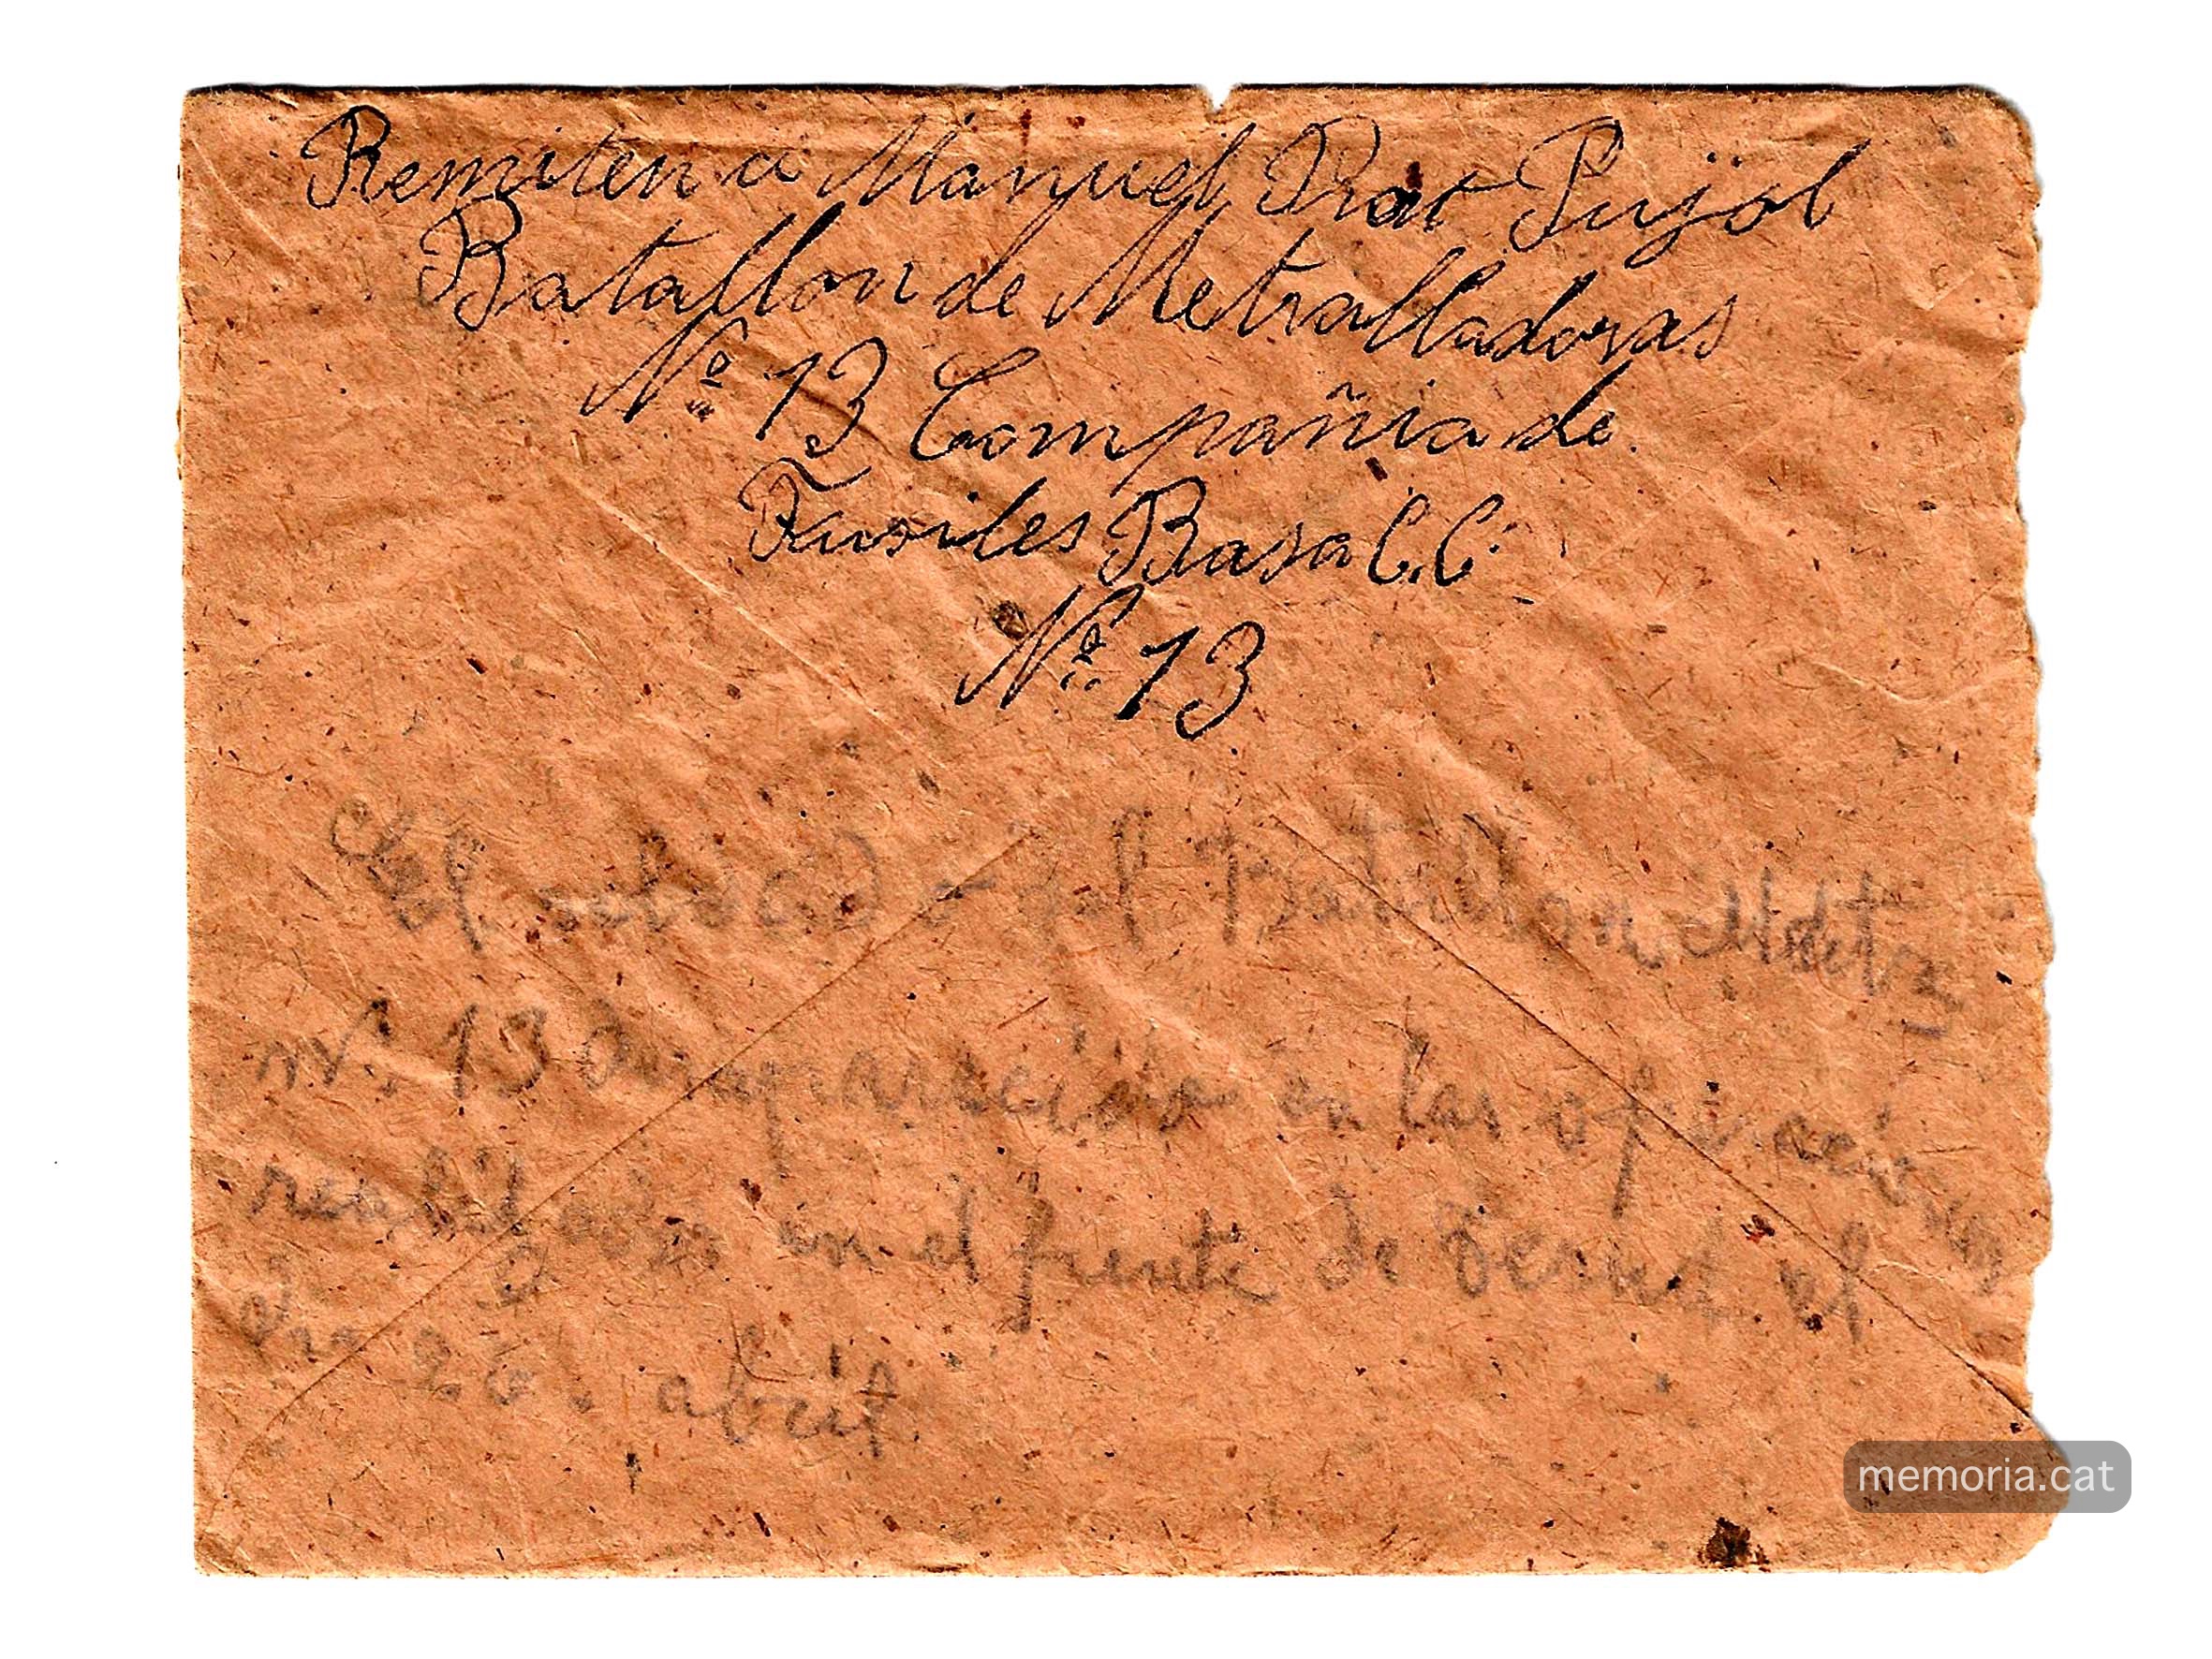 Remiten a Manuel Prat Pujol
Batallon de Metralladoras
Nº 13 Compañia de
Fusiles Basa C.C.
Nº 13
El soldado del Batallon Metz
nº 13 en las
en el frente de Teruel el
dia 26 abril.
memoria.cat